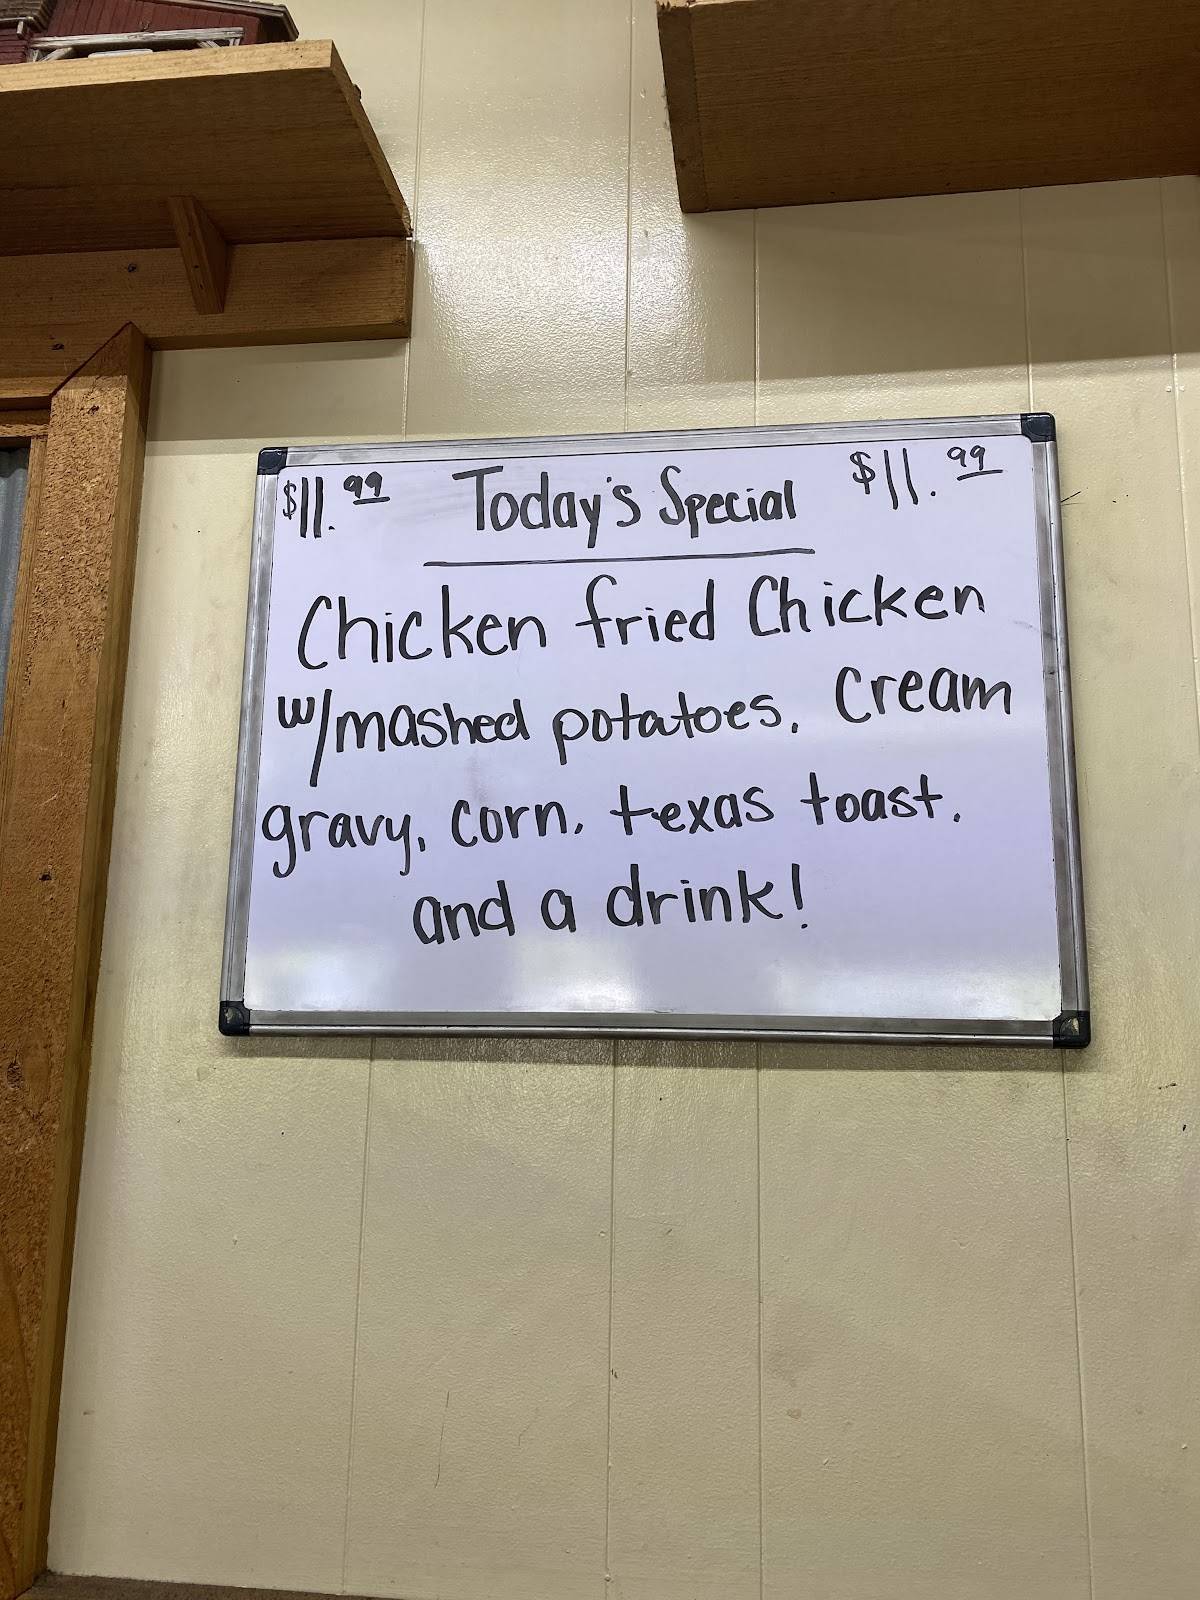 $11.99 Today's Special $11.99
Chicken fried Chicken
w/mashed potatoes, Cream
gravy, corn, texas toast,
and a drink!